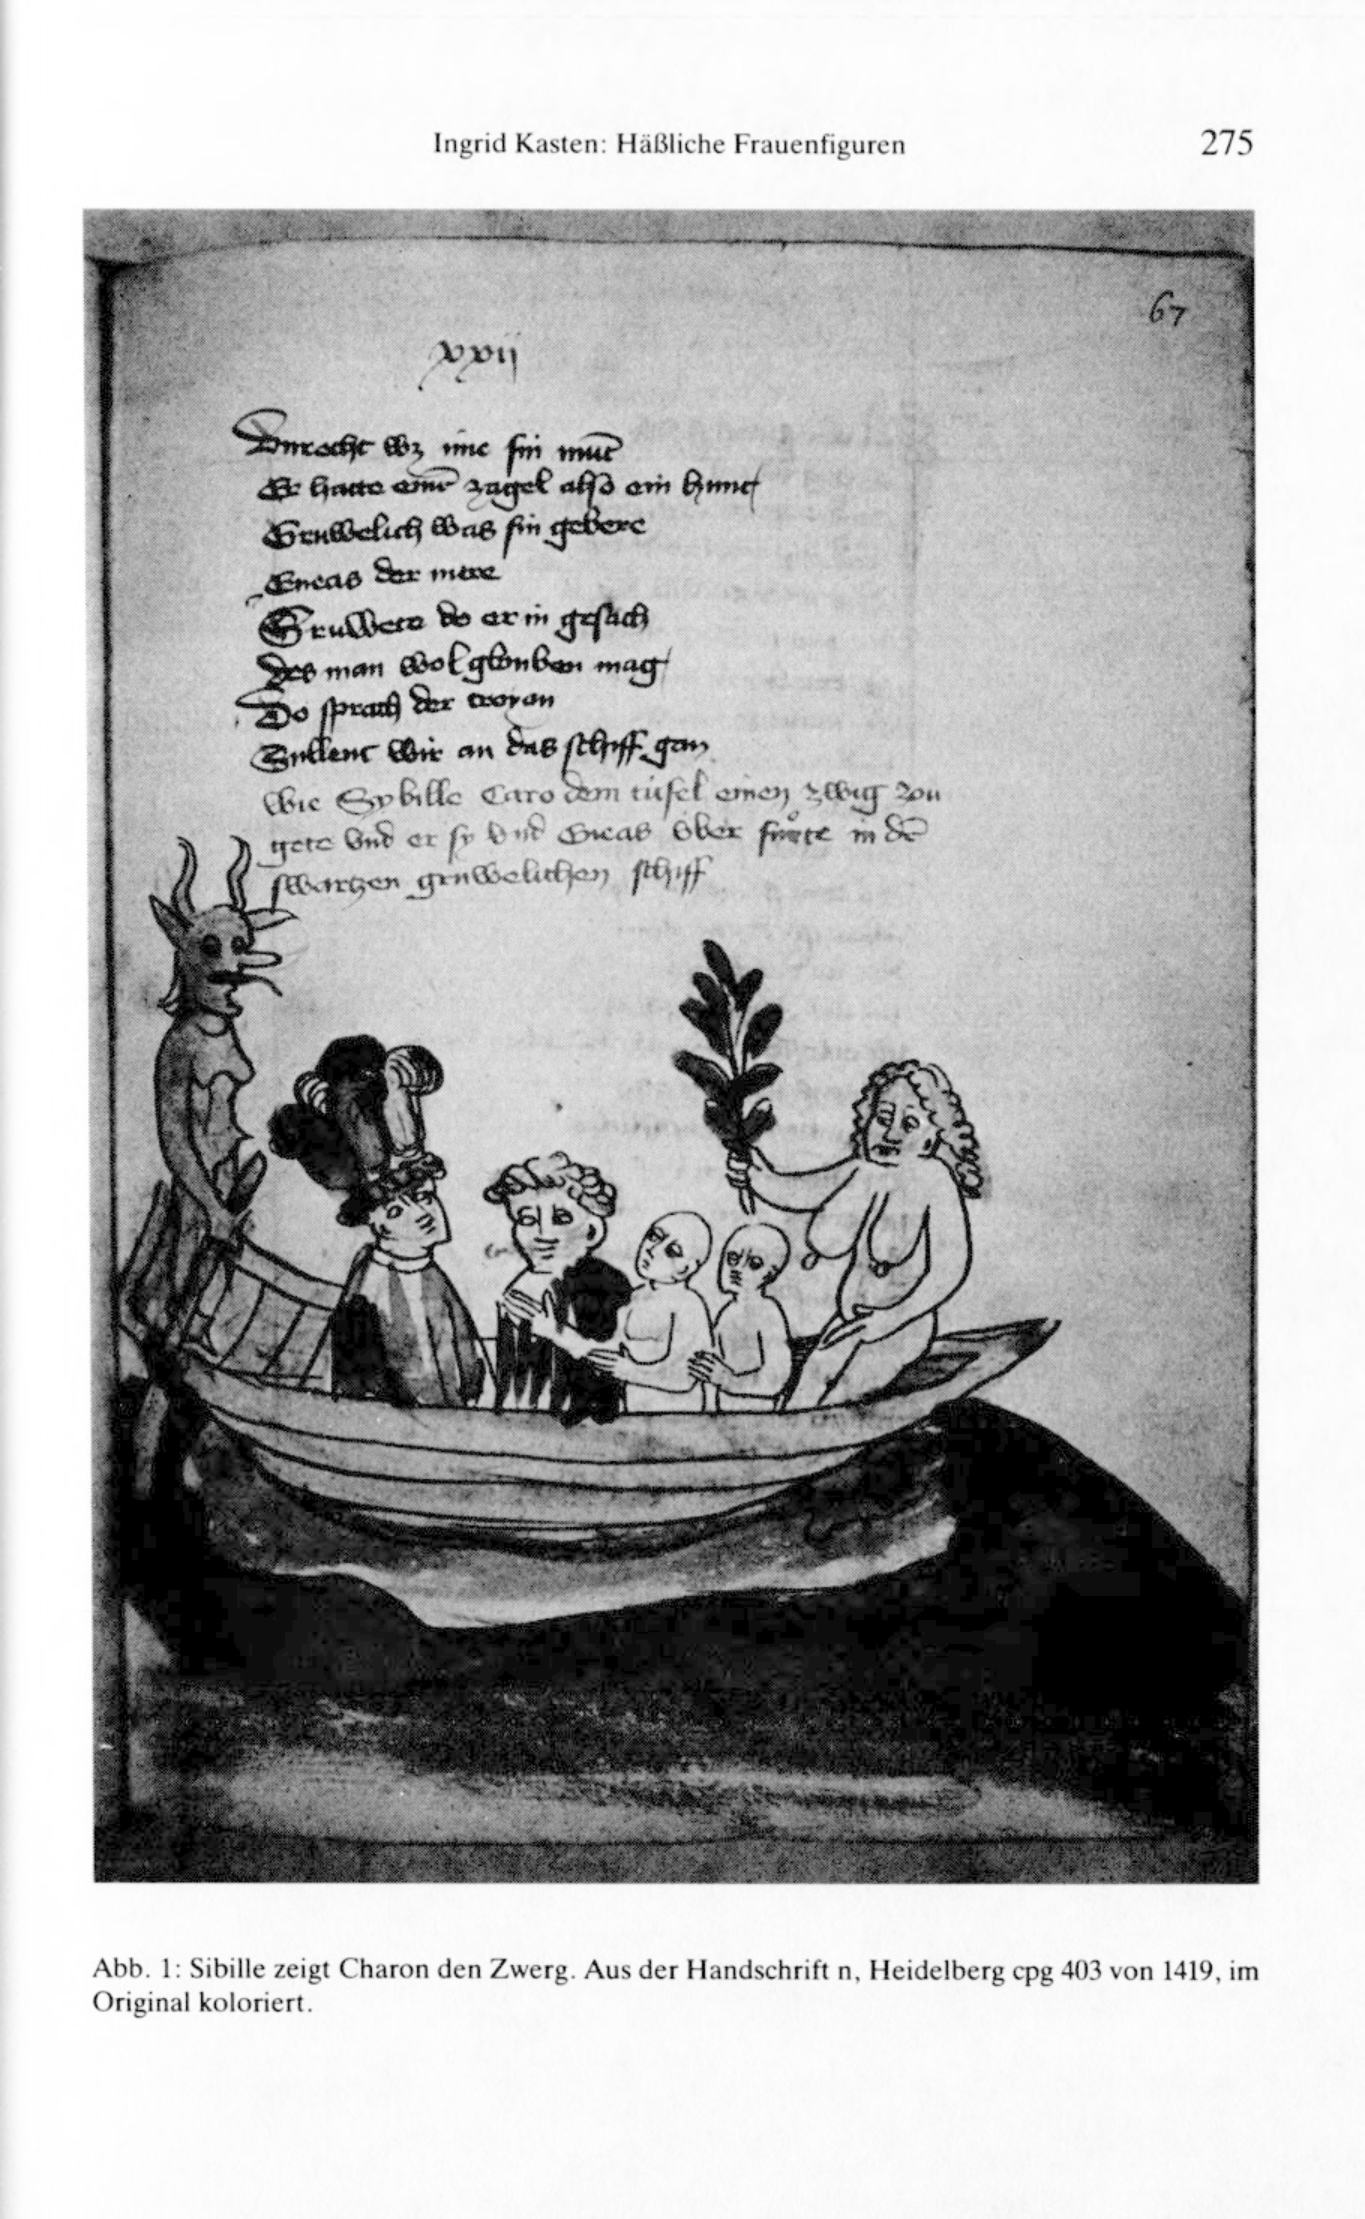 Ingrid Kasten: Häßliche Frauenfiguren 275
67
xxij
Vnrecht wz ime sin mūt
Er hatte einē zagel also ein hunt
Gruwelich was sin gebere
Eneas der mere
Gruwete do er in gesach
des man wol glouben mag
Do sprach der troyan
Sullent wir an das schiff gan
Wie Sybille Caro dem tüfel einen zwig zou
gete vnd er sy vnd Eneas vber fůrte in dē
swartzen gruwelichen schiff
Abb. 1: Sibille zeigt Charon den Zwerg. Aus der Handschrift n, Heidelberg cpg 403 von 1419, im
Original koloriert.